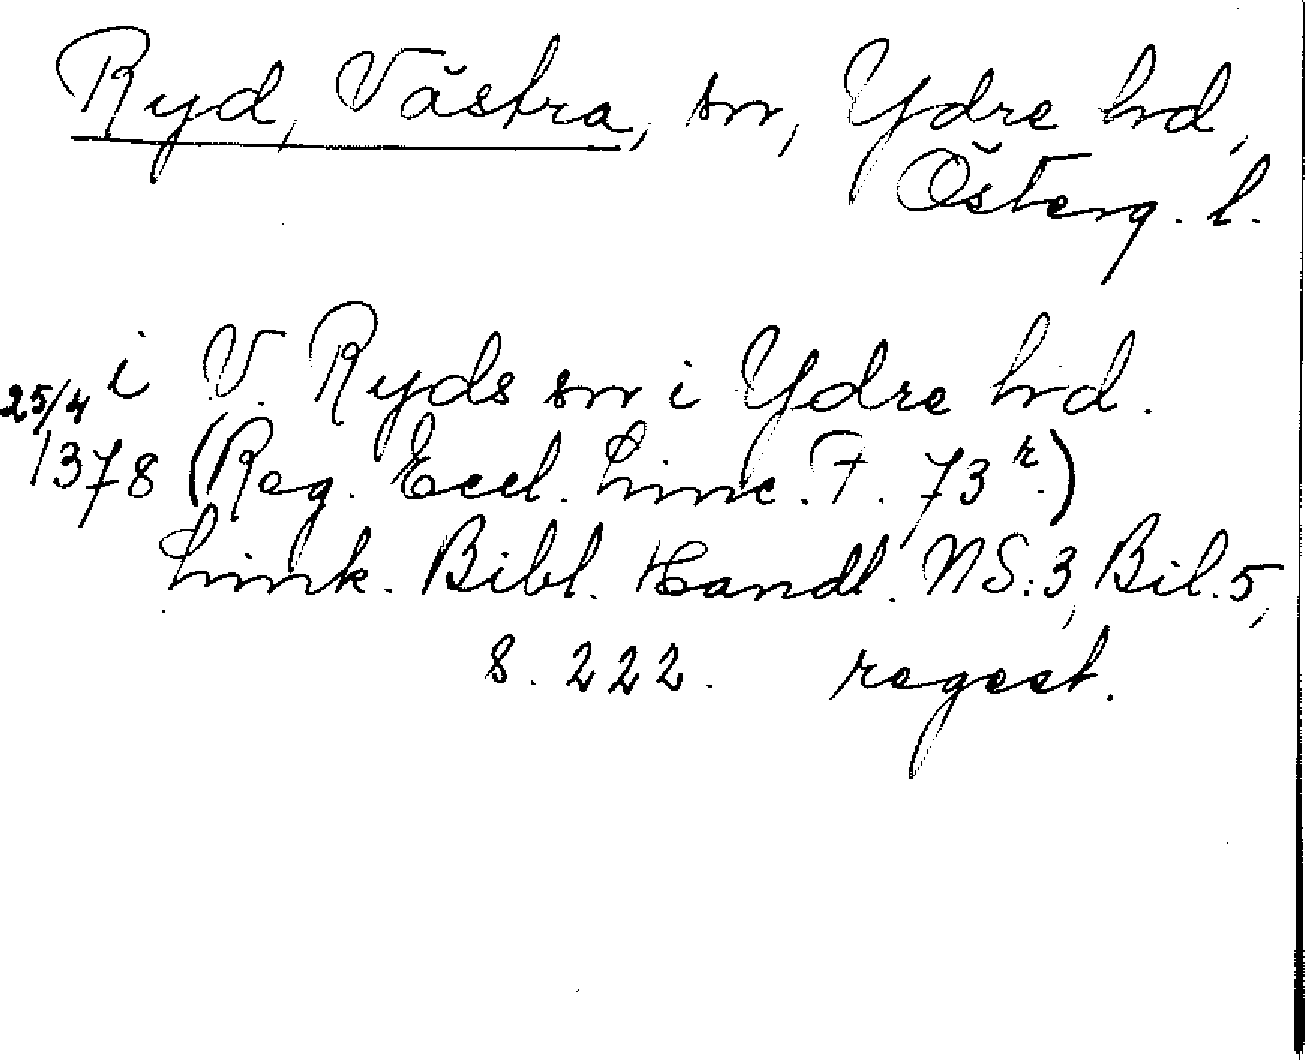 Ryd, Västra, sn, Ydre hd,
Österg. l.
i V. Ryds sn i Ydre hd.
25/4
1378 (Reg. Eccl. Linc. F. 73 r.)
Link. Bibl. Handl. NS:3, Bil. 5,
s. 222. regest.